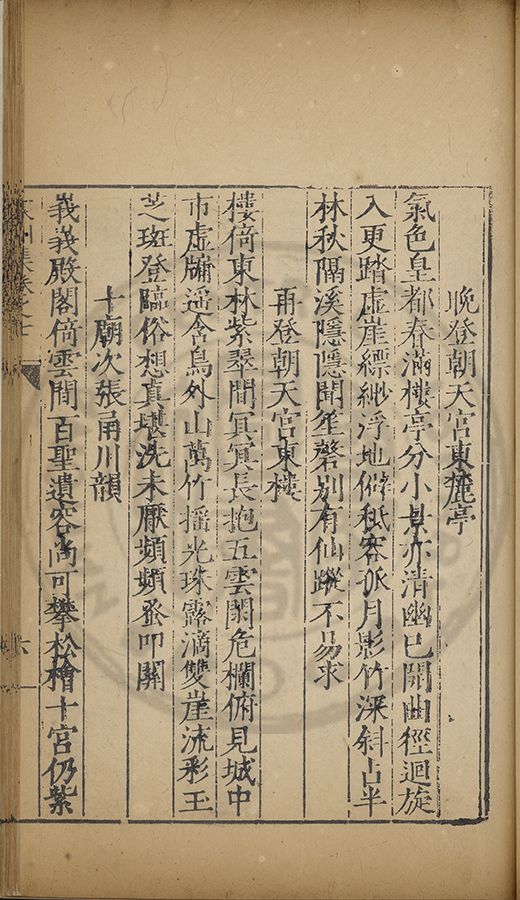 晚登朝天宮東麓亭
氣色皇都春滿樓亭分小景亦清幽已開曲徑迴旋
入更踏虛崖縹緲浮地僻秪容孤月影竹深斜占半
林秋隔溪隱隱聞笙磬別有仙蹤不易求
再登朝天宮東樓
樓倚東林紫翠間冥冥長抱五雲關危欄俯見城中
市虛牖遥含鳥外山萬竹摇光珠露滴雙崖流彩玉
芝斑登臨俗想真堪洗未厭頻頻發叩關
十廟次張甬川韻
峩峩殿閣倚雲間百聖遺容尚可攀松檜十宮仍紫
集卷之十
六